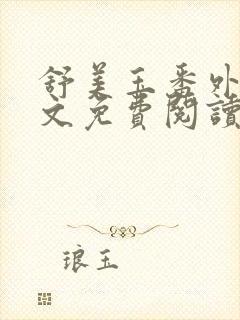 舒美玉番外
文免費閱讀
琅玉